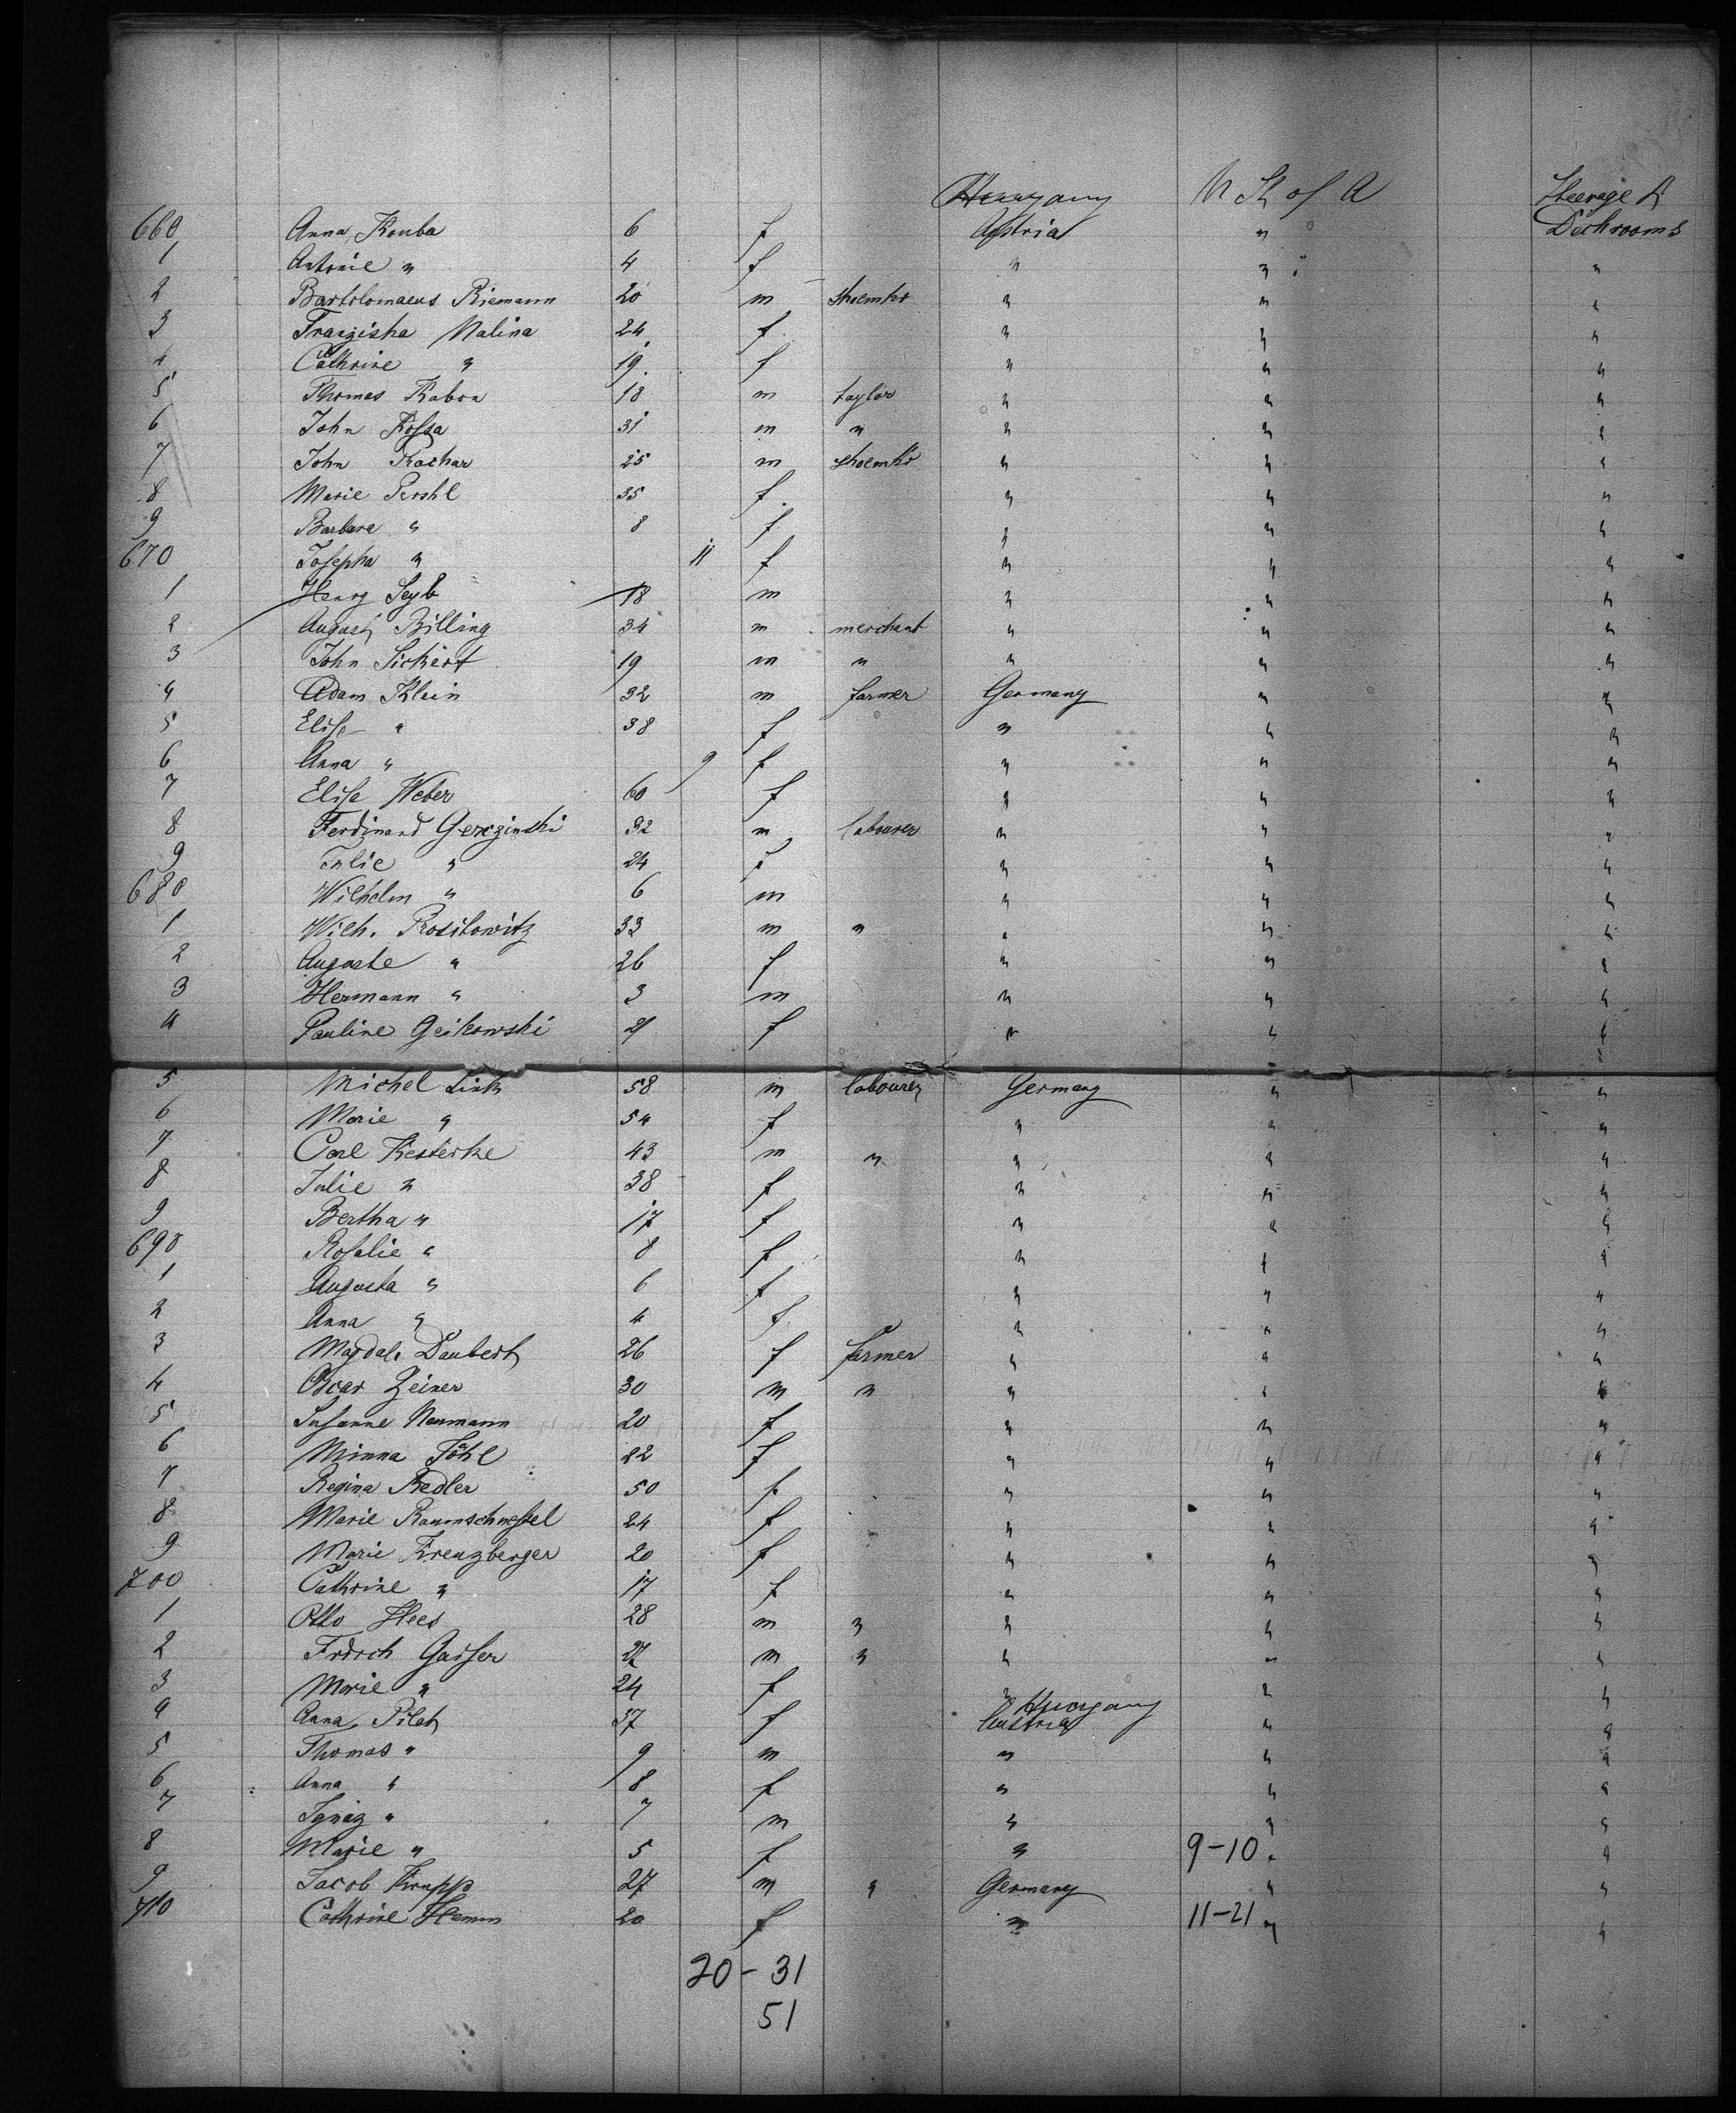 Hungary U St of A Steerage &
660 Anna Kouba 6 f Austria " Deckrooms
1 Antonie " 4 f " " "
2 Bartolomaeus Riemann 20 m shoemkr " " "
3 Franziska Malina 24 f " " "
4 Cathrine " 19 f " " "
5 Thomas Kabon 18 m taylor " " "
6 John Kossa 31 m " " " "
7 John Kachar 25 m shoemkr " " "
8 Marie Pershl 35 f " " "
9 Barbara " 8 f " " "
670 Josepha " 11 f " " "
1 Henry Seyb 18 m " " "
2 August Billing 34 m merchant " " "
3 John Sickert 19 m " " " "
4 Adam Klein 32 m farmer Germany " "
5 Elise " 38 f " " "
6 Anna " 9 f " " "
7 Elise Weber 60 f " " "
8 Ferdinand Gerczinski 32 m labourer " " "
9 Julie " 24 f " " "
680 Wilhelm " 6 m " " "
1 Wilh. Rositowitz 33 m " " " "
2 Auguste " 26 f " " "
3 Hermann " 3 m " " "
4 Pauline Geikowski 21 f " " "
5 Michel Link 58 m labourer Germany " "
6 Marie " 54 f " " "
7 Carl Kesterke 43 m " " " "
8 Julie " 38 f " " "
9 Bertha " 17 f " " "
690 Rosalie " 8 f " " "
1 Augusta " 6 f " " "
2 Anna " 4 f " " "
3 Magdal. Daubert 26 f farmer " " "
4 Oscar Zeiner 30 m " " " "
5 Susanne Naumann 20 f " " "
6 Minna Föhl 22 f " " "
7 Regina Redler 50 f " " "
8 Marie 24 f " " "
9 Marie Kreuzberger 20 f " " "
700 Cathrine " 17 f " " "
1 Otto Hees 28 m " " " "
2 Frdrch Gaisser 27 m " " " "
3 Marie " 24 f " " "
Hungary
4 Anna Pilat 37 f Austria " "
5 Thomas " 9 m " " "
6 Anna " 8 f " " "
7 Ignaz " 7 m " " "
8 Marie " 5 f " 9-10 " "
9 Jacob Krupp 27 m " Germany " "
710 Cathrine Hemm 20 f " 11-21 " "
20-31
51